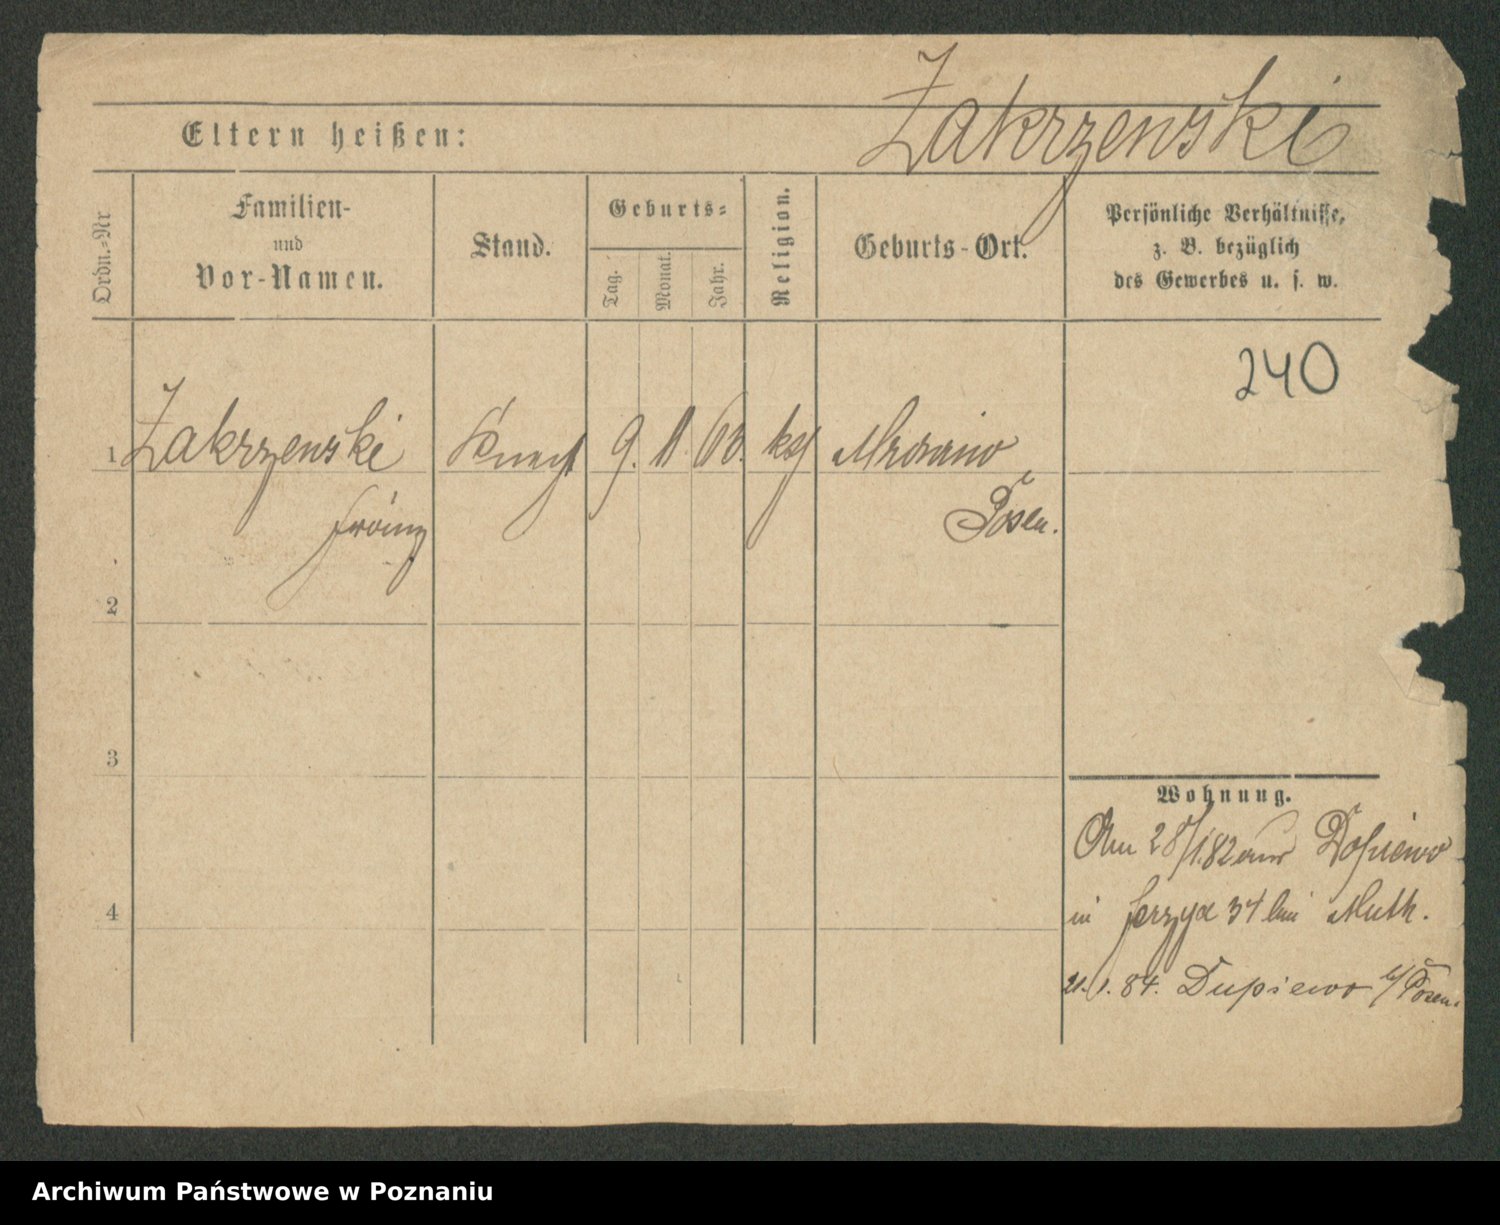 Zakrzewski
Eltern heißen:
Ordn.=Nr
Familien-
und
Vor-Namen.
Stand.
Geburts=
Tag.
Monat.
Jahr.
Religion.
Geburts-Ort.
Persönliche Verhältnisse,
z. B. bezüglich
des Gewerbes u. s. w.
240
1 Zakrzewski Knecht 9. 11 60. kg
Franz Posen.
2
3
Wohnung.
Am 28/1.82 aus Dopiewo
4
in Jerzyce 34 bei Muth.
21.1.84. Dupiewo b/Posen.
Archiwum Państwowe w Poznaniu